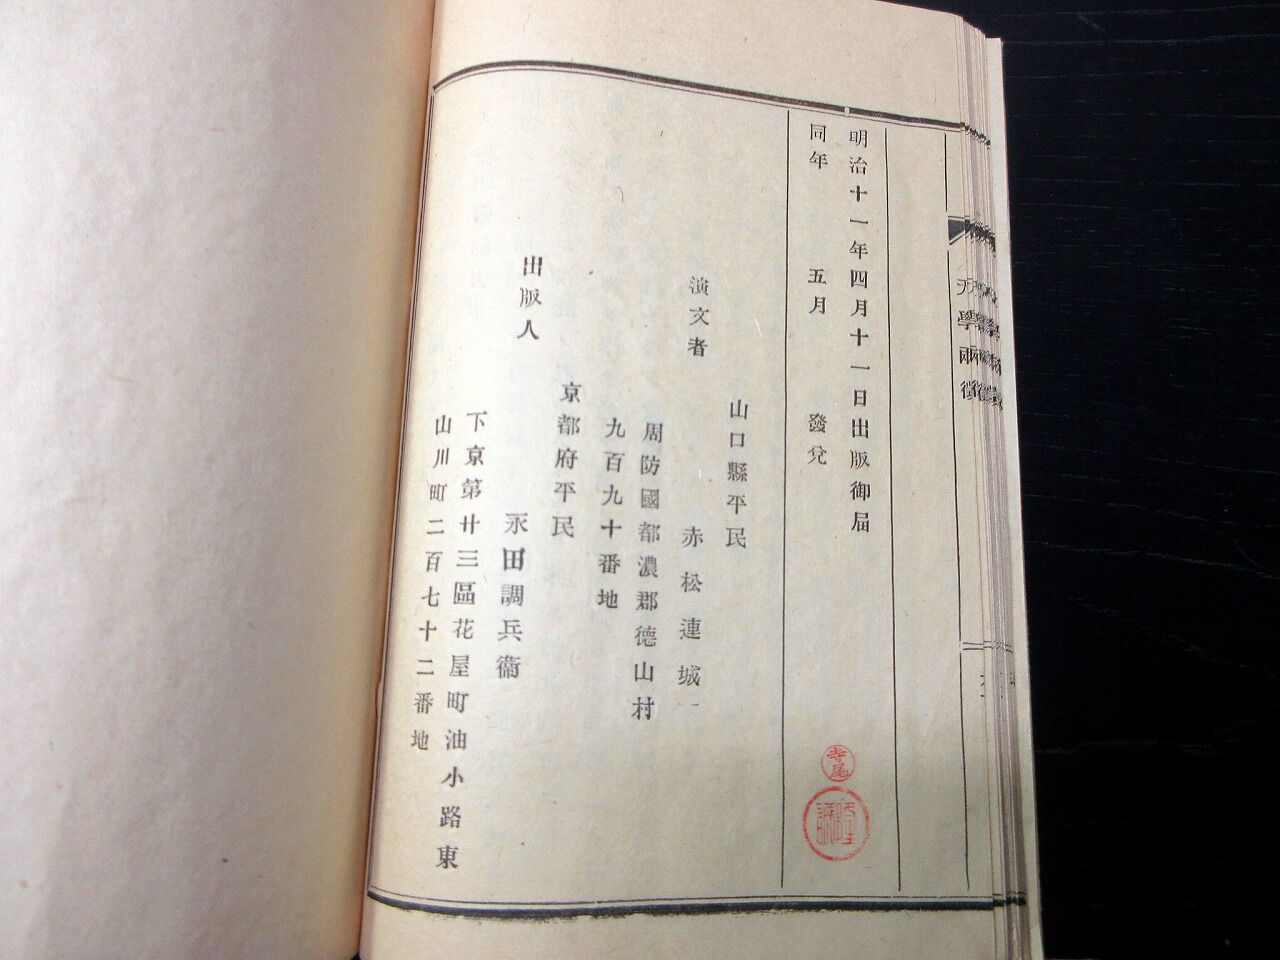 明治十一年四月十一日出版御届
同年 五月 發兌
山口縣平民
演文者 赤松連城
周防國都濃郡德山村
九百九十番地
京都府平民
出版人 永田調兵衞
下京第廿三區花屋町油小路東
山川町二百七十二番地
學兩徵
寺尾